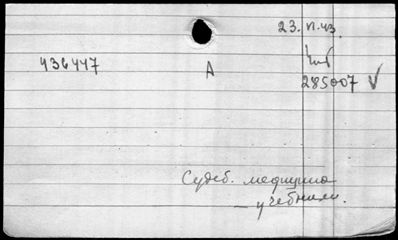 23.п.43.
436447
А
285007 V
Судеб. медицина
— учебники.